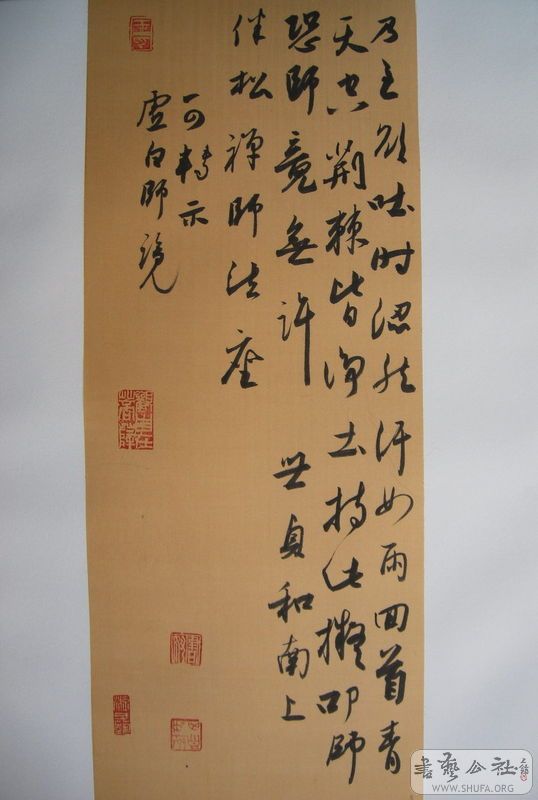 乃至欲唾时涊然汗如雨回首青
天中荆棘皆净土持此拟叩师
恐师竟无许 世贞和南上
伴松禅师法座
一可转示
虚白师览
書藝公社
WWW.SHUFA.ORG